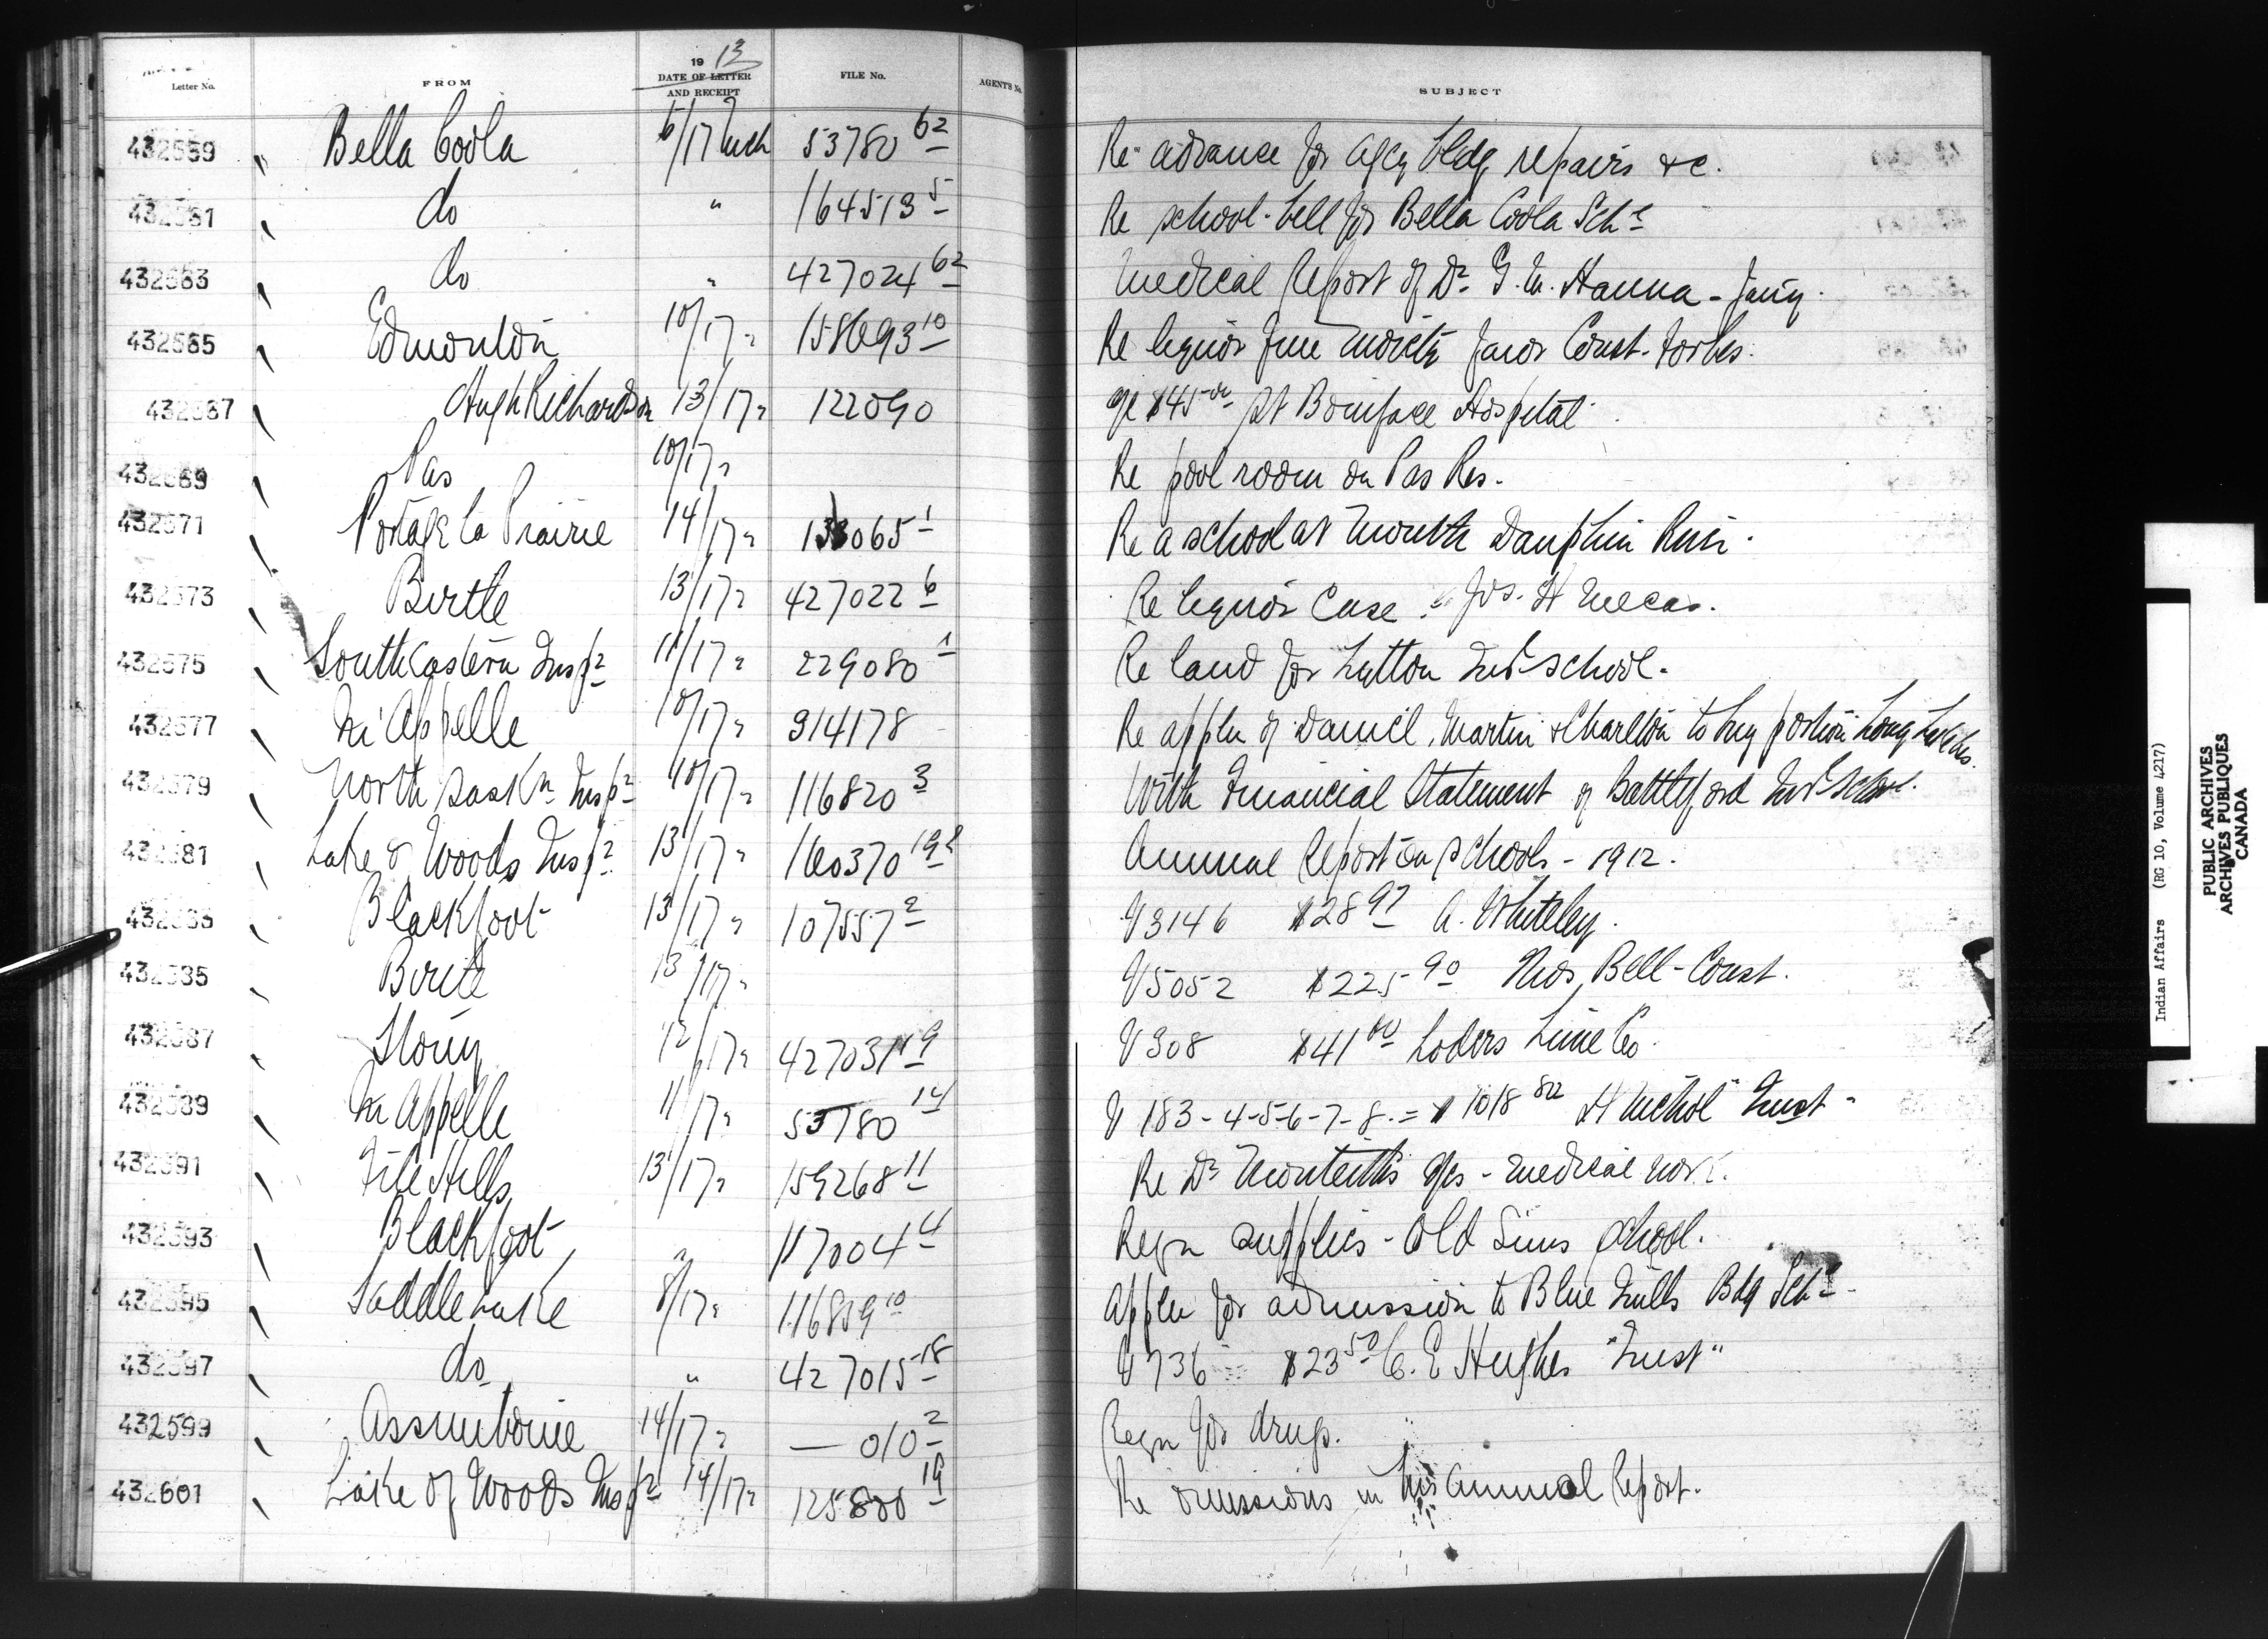 Letter No. FROM 1913 DATE OF LETTER AND RECEIPT FILE No. AGENTS No. SUBJECT
432559 Bella Coola 6/17 Mch 53780 62 Re advance for Agcy bldg repairs &c.
432561 do " 164513 5 Re school-bell for Bella Coola Schl
432563 do " 427024 62 Medical Report of Dr G. M. Hanna - Jany.
432565 Edmonton 10/17 " 158693 10 Re liquor fine moiety favor Const. Forbes.
432567 Hugh Richardson 13/17 " 122090 a/c $45 00 St Boniface Hospital
432569 Pas 10/17 " Re pool room on Pas Res.
432571 Portage la Prairie 14/17 " 133065 1 Re a school at mouth Dauphin River.
432573 Birtle 13/17 " 427022 6 Re liquor Case Jos. H
432575 South Eastern Inspr 11/17 " 229080 1 Re land for Lytton Indl School.
432577 Qu'Appelle 10/17 " 314178 Re appln of Daniel, Martin & Charlton to buy portion Long
432579 North Saskn Inspr 10/17 " 116820 3 With Financial Statement of Battleford Indl School.
432581 Lake of Woods Inspr 13/17 " 160370 Annual Report on schools - 1912.
432583 Blackfoot 13/17 " 107557 2 V 3146 $28 97 A. Whiteley.
432585 Birtle 13/17 " V 5052 $225 90 Thos. Bell - Const.
432587 Stony 12/17 " 427031 19 V 308 $41 00 Loders Lime Co.
432589 Qu'Appelle 11/17 " 53780 14 V 183-4-5-6-7-8. = $1018 82 H Nichol "Trust"
432591 File Hills 13/17 " 159268 11 Re Dr Monteith's a/cs - medical work.
432593 Blackfoot " 117004 4 Reqn supplies - Old Suns School.
432595 Saddle Lake 8/17 " 116859 10 Appln for admission to Blue Quills Bdg Schl
432597 do " 427015 18 V 736 $23 50 C. E Hughes "Trust"
432599 Assiniboine 14/17 " — 010 2 Reqn for drugs.
432601 Lake of Woods Inspr 14/17 " 125800 19 Re omissions in his Annual Report.
Indian Affairs (RG 10, Volume 4217)
PUBLIC ARCHIVES
ARCHIVES PUBLIQUES
CANADA